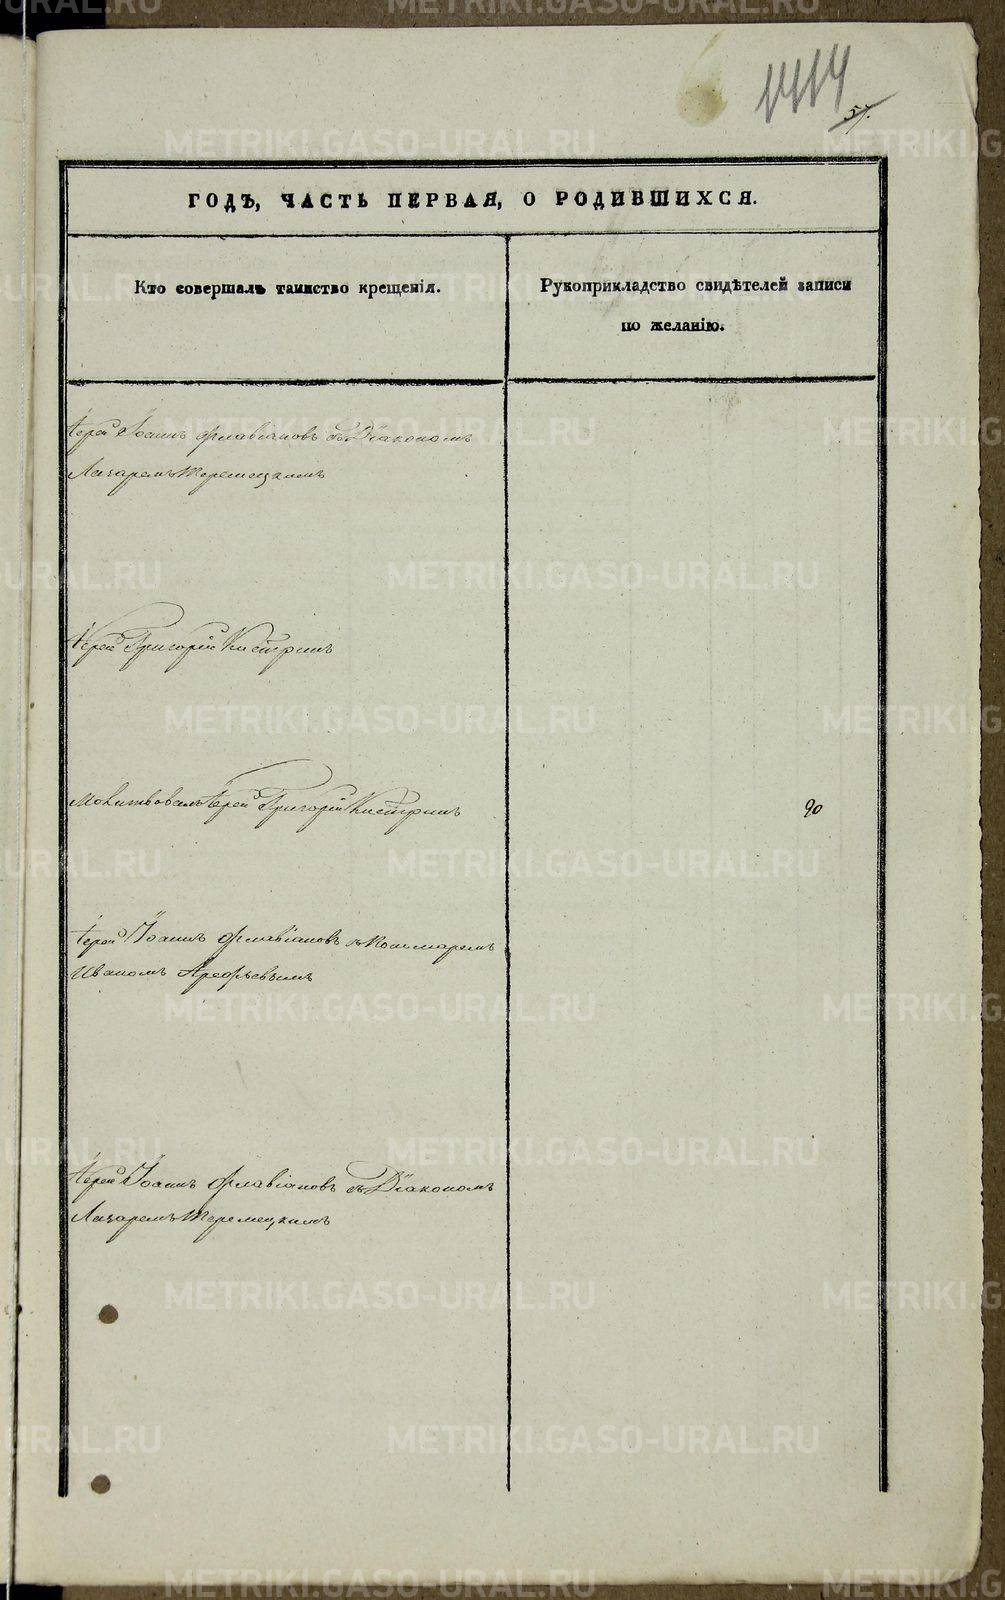 1414
57.
ГОДЪ, ЧАСТЬ ПЕРВАЯ, О РОДИВШИХСЯ.
Кто совершалъ таинство крещенія.
Рукоприкладство свидѣтелей записи
по желанію.
Іерей Іоаннъ Флавіановъ съ Діакономъ
Лазаремъ Теремецкимъ
Іерей Григорій Кистринъ
Молитвовалъ Іерей Григорій Кистринъ
90
Іерей Іоаннъ Флавіановъ съ Пономаремъ
Иваномъ Арефьевымъ
Іерей Іоаннъ Флавіановъ съ Діакономъ
Лазаремъ Теремецкимъ
METRIKI.GASO-URAL.RU